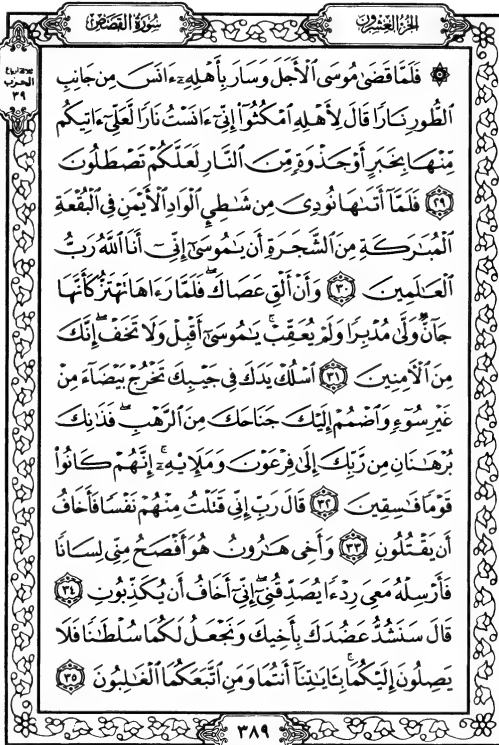 سُورَةُ القَصَصِ
الجُزْءُ العِشْرُونَ
الحِزْب
٣٩
۞ فَلَمَّا قَضَىٰ مُوسَى ٱلْأَجَلَ وَسَارَ بِأَهْلِهِۦٓ ءَانَسَ مِن جَانِبِ
ٱلطُّورِ نَارًا قَالَ لِأَهْلِهِ ٱمْكُثُوٓا۟ إِنِّىٓ ءَانَسْتُ نَارًا لَّعَلِّىٓ ءَاتِيكُم
مِّنْهَا بِخَبَرٍ أَوْ جَذْوَةٍ مِّنَ ٱلنَّارِ لَعَلَّكُمْ تَصْطَلُونَ
٢٩ فَلَمَّآ أَتَىٰهَا نُودِىَ مِن شَٰطِئِ ٱلْوَادِ ٱلْأَيْمَنِ فِى ٱلْبُقْعَةِ
ٱلْمُبَٰرَكَةِ مِنَ ٱلشَّجَرَةِ أَن يَٰمُوسَىٰٓ إِنِّىٓ أَنَا ٱللَّهُ رَبُّ
ٱلْعَٰلَمِينَ ٣٠ وَأَنْ أَلْقِ عَصَاكَ ۖ فَلَمَّا رَءَاهَا تَهْتَزُّ كَأَنَّهَا
جَآنٌّ وَلَّىٰ مُدْبِرًا وَلَمْ يُعَقِّبْ ۚ يَٰمُوسَىٰٓ أَقْبِلْ وَلَا تَخَفْ ۖ إِنَّكَ
مِنَ ٱلْءَامِنِينَ ٣١ ٱسْلُكْ يَدَكَ فِى جَيْبِكَ تَخْرُجْ بَيْضَآءَ مِنْ
غَيْرِ سُوٓءٍ وَٱضْمُمْ إِلَيْكَ جَنَاحَكَ مِنَ ٱلرَّهْبِ ۖ فَذَٰنِكَ
بُرْهَٰنَانِ مِن رَّبِّكَ إِلَىٰ فِرْعَوْنَ وَمَلَإِي۟هِۦٓ ۚ إِنَّهُمْ كَانُوا۟
قَوْمًا فَٰسِقِينَ ٣٢ قَالَ رَبِّ إِنِّى قَتَلْتُ مِنْهُمْ نَفْسًا فَأَخَافُ
أَن يَقْتُلُونِ ٣٣ وَأَخِى هَٰرُونُ هُوَ أَفْصَحُ مِنِّى لِسَانًا
فَأَرْسِلْهُ مَعِىَ رِدْءًا يُصَدِّقُنِىٓ ۖ إِنِّىٓ أَخَافُ أَن يُكَذِّبُونِ ٣٤
قَالَ سَنَشُدُّ عَضُدَكَ بِأَخِيكَ وَنَجْعَلُ لَكُمَا سُلْطَٰنًا فَلَا
يَصِلُونَ إِلَيْكُمَا ۚ بِـَٔايَٰتِنَآ أَنتُمَا وَمَنِ ٱتَّبَعَكُمَا ٱلْغَٰلِبُونَ ٣٥
٣٨٩